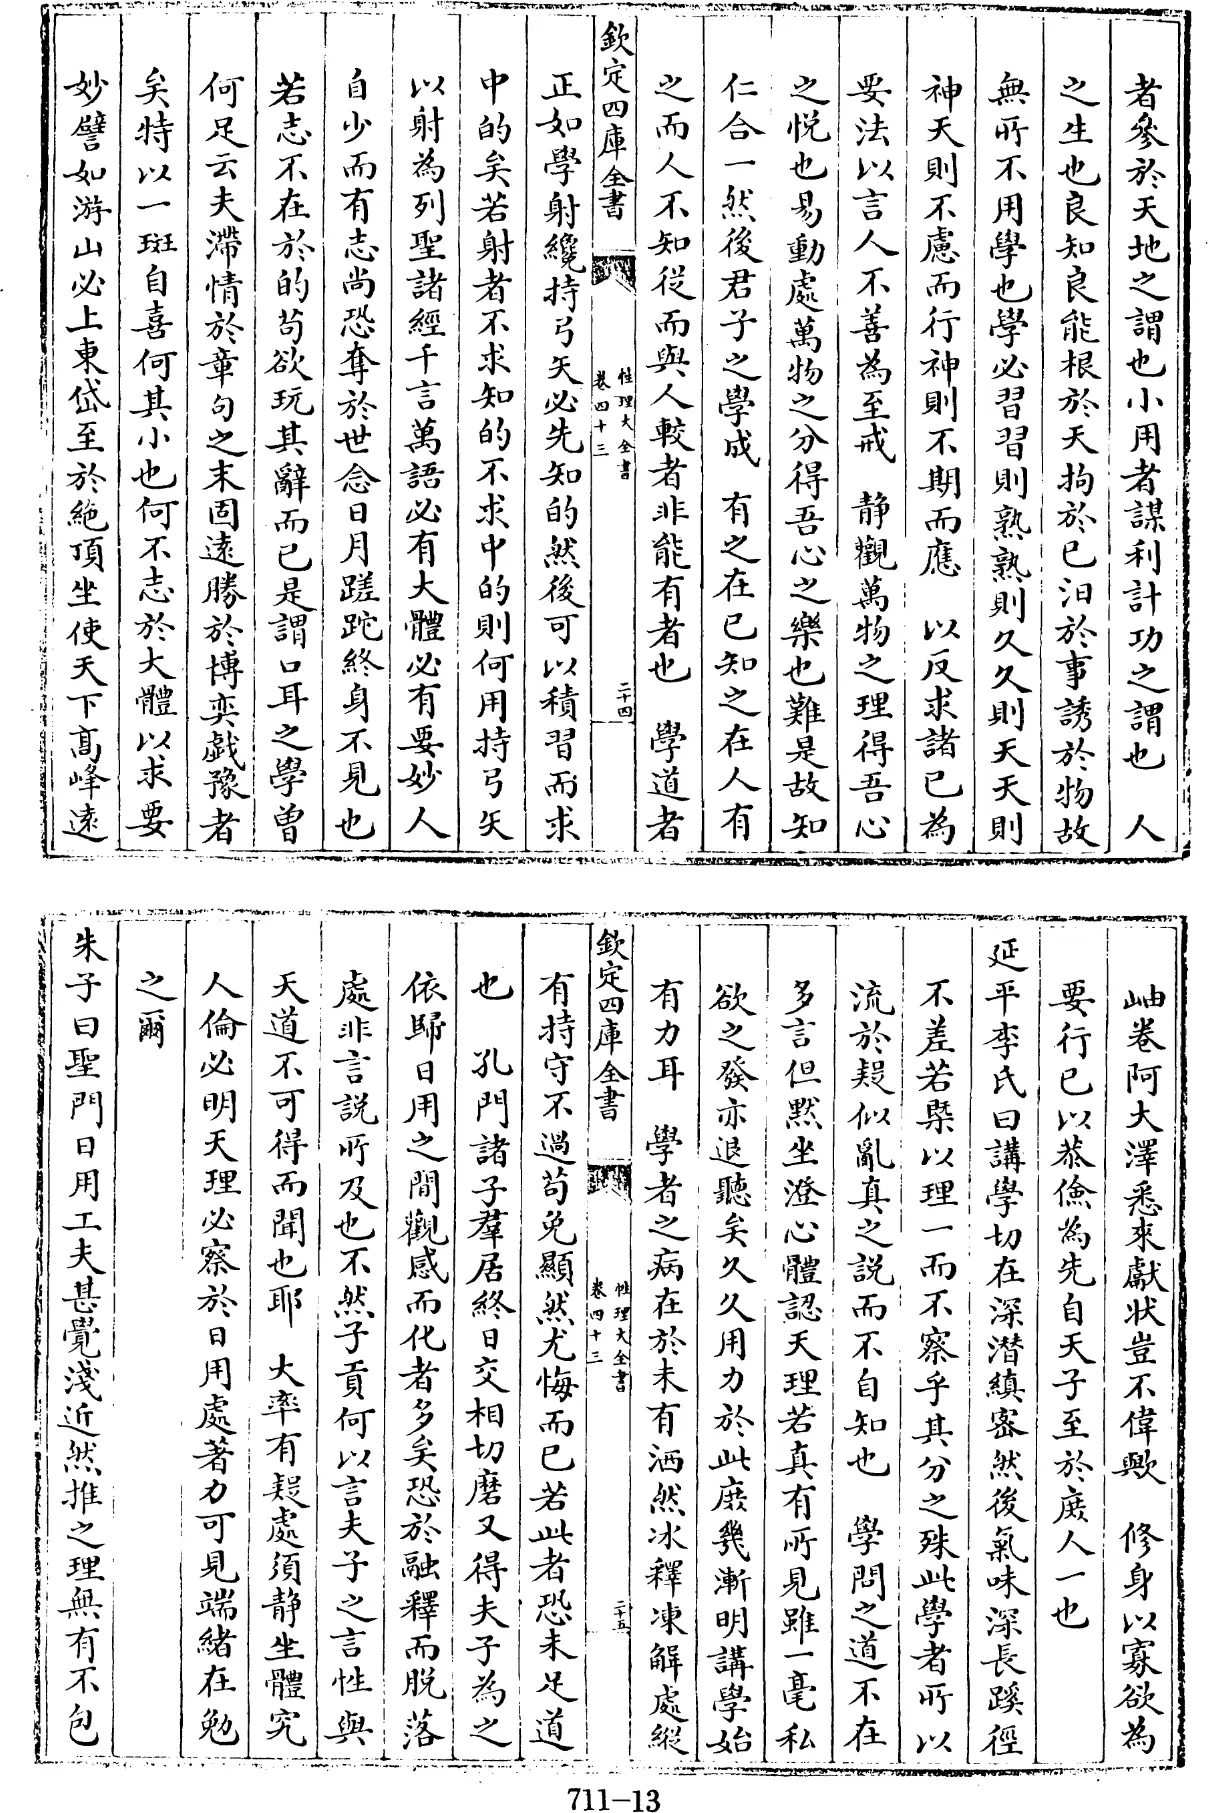 者參於天地之謂也小用者謀利計功之謂也　人
之生也良知良能根於天拘於已汨於事誘於物故
無所不用學也學必習習則熟熟則久久則天天則
神天則不慮而行神則不期而應　以反求諸已為
要法以言人不善為至戒　静觀萬物之理得吾心
之悅也易動處萬物之分得吾心之樂也難是故知
仁合一然後君子之學成　有之在已知之在人有
之而人不知從而與人較者非能有者也　學道者
欽定四庫全書
性理大全書
卷四十三
二十四
正如學射纔持弓矢必先知的然後可以積習而求
中的矣若射者不求知的不求中的則何用持弓矢
以射為列聖諸經千言萬語必有大體必有要妙人
自少而有志尚恐奪於世念日月蹉跎終身不見也
若志不在於的茍欲玩其辭而已是謂口耳之學曾
何足云夫滯情於章句之末固遠勝於博奕戲豫者
矣特以一斑自喜何其小也何不志於大體以求要
妙譬如游山必上東岱至於絶頂坐使天下髙峰遠
岫卷阿大澤悉來獻狀豈不偉歟　修身以寡欲為
要行已以恭儉為先自天子至於庶人一也
延平李氏曰講學切在深潜縝宻然後氣味深長蹊徑
不差若槩以理一而不察乎其分之殊此學者所以
流於疑似亂真之説而不自知也　學問之道不在
多言但黙坐澄心體認天理若真有所見雖一毫私
欲之發亦退聽矣久久用力於此庶幾漸明講學始
有力耳　學者之病在於未有洒然冰釋凍解處縱
欽定四庫全書
性理大全書
卷四十三
二十五
有持守不過茍免顯然尤悔而已若此者恐未足道
也　孔門諸子羣居終日交相切磨又得夫子為之
依歸日用之間觀感而化者多矣恐於融釋而脱落
處非言説所及也不然子貢何以言夫子之言性與
天道不可得而聞也耶　大率有疑處須静坐體究
人倫必明天理必察於日用處著力可見端緒在勉
之爾
朱子曰聖門日用工夫甚覺淺近然推之理無有不包
711-13